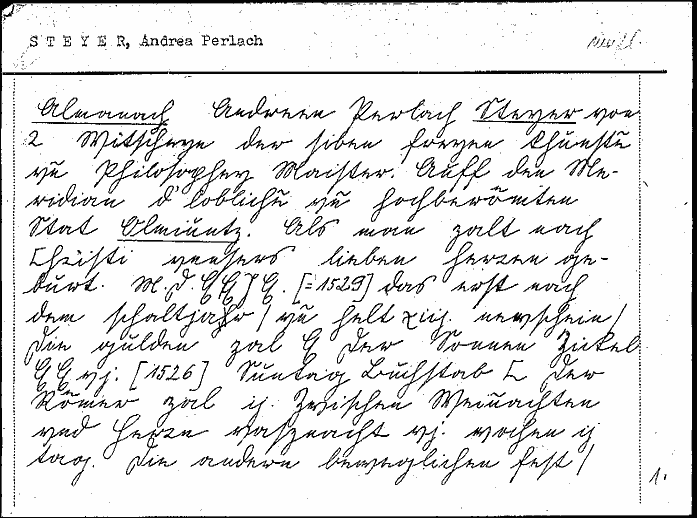 STEYER, Andrea Perlach
Almanach Andreen Perlach Steyer von
2 Witscheyn der siben freyen Khunstn
vn Philosophey Maister. Auff den Me-
ridian d' loblichn vn hochberömten
Stat Olmiuntz. Als man zalt nach
Christi vnsers lieben herren ge-
burt. M.D. [=1529] das erst nach
dem schaltjahr / vn helt xiij. newschein /
Die gulden zal der Sonnen Zirkel
vj. [1526] Suntag Buchstab C der
Römer zal ij. Zwischen Weinachten
vnd Herrn vasznacht vj. wochen ij
tag. Die andern beweglichen fest /
1.